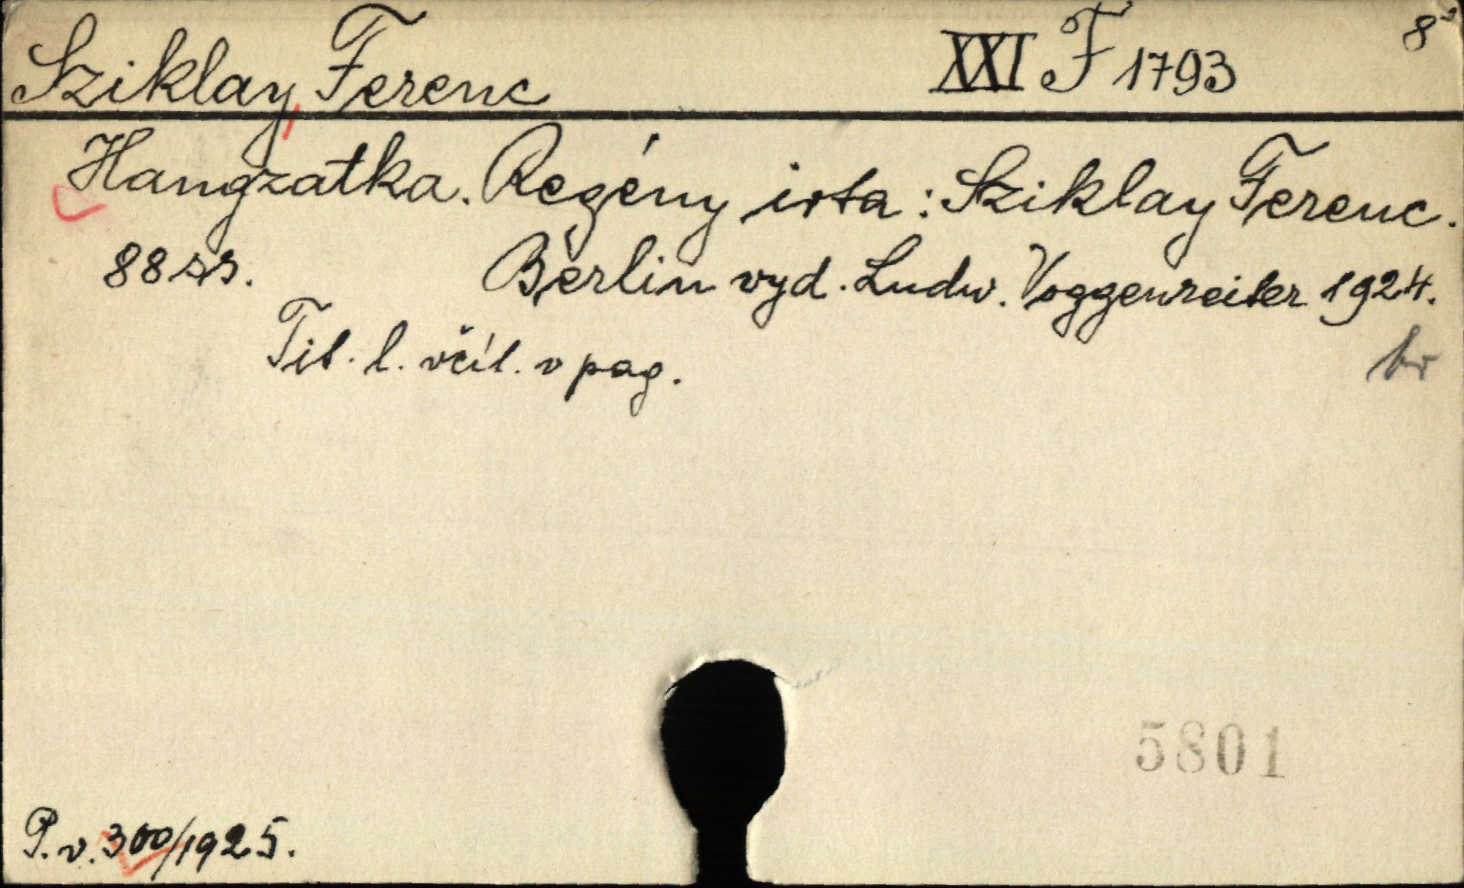 8°
Sziklay, Ferenc XXI F 1793
Hangzatka. Regény irta: Sziklay Ferenc.
88 ss. Berlin vyd. Ludw. Voggenreiter 1924.
Tit. l. včít. v pag.
br
5801
P. v. 300/1925.